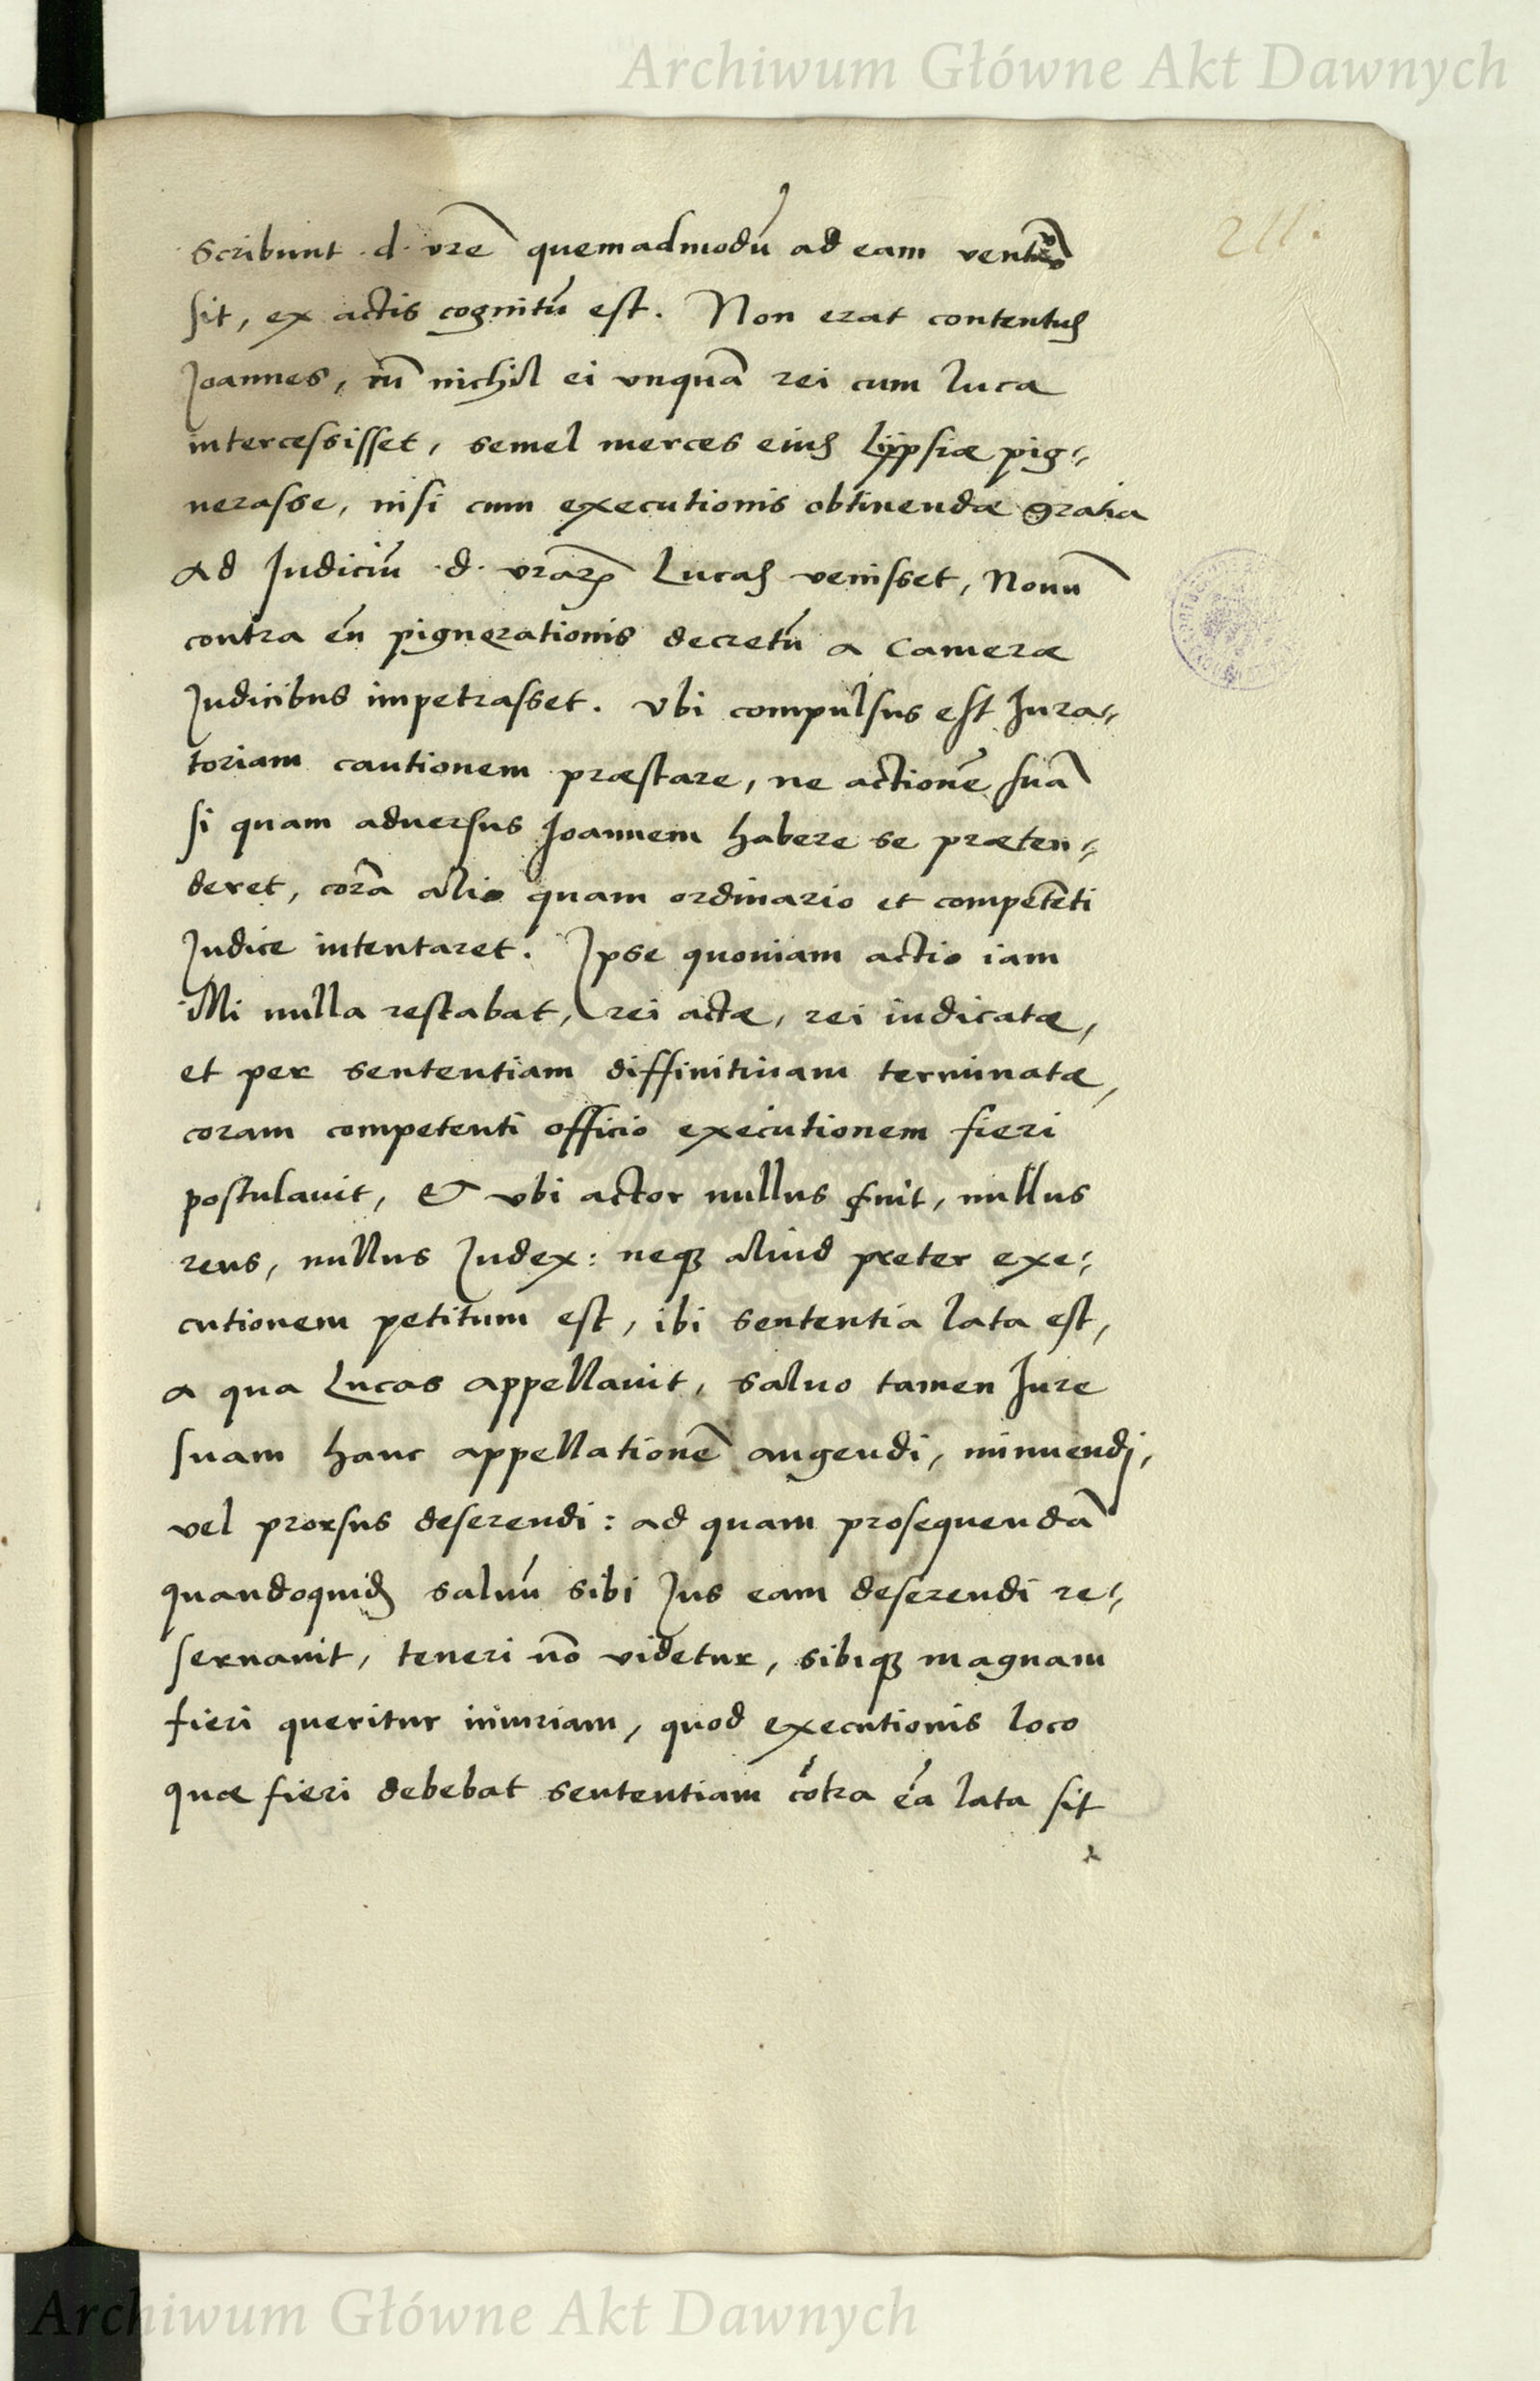 Archiwum Główne Akt Dawnych
211.
scribunt .d. vrẽ quemadmodũ ad eam
sit, ex actis cognitũ est. Non erat contentus
Joannes, cũ nichil ei vnquã rei cum luca
intercessisset, semel merces eius Lypsiæ pig-
nerasse, nisi cum executionis obtinendæ gratia
ad Judiciũ .d. vrarꝫ Lucas venisset, Nouũ
contra eũ pignerationis decretũ a Cameræ
Judicibus impetrasset. Vbi compulsus est Jura-
toriam cautionem præstare, ne actionẽ suã
si quam aduersus Joannem habere se præten-
deret, corã alio quam ordinario et competẽti
Judice intentaret. Ipse quoniam actio iam
illi nulla restabat, rei actæ, rei iudicatæ,
et per sententiam diffinitiuam terminatæ,
coram competenti officio executionem fieri
postulauit, & vbi actor nullus fuit, nullus
reus, nullus Judex: neqꝫ aliud preter exe-
cutionem petitum est, ibi sententia lata est,
a qua Lucas appellauit, saluo tamen Jure
suam hanc appellationẽ augendi, minuendj,
vel prorsus deserendi: ad quam prosequendã
quandoquidẽ saluũ sibi Jus eam deserendi re-
seruauit, teneri nõ videtur, sibiqꝫ magnam
fieri queritur iniuriam, quod executionis loco
quæ fieri debebat sententiam cõtra eã lata sit
Archiwum Główne Akt Dawnych